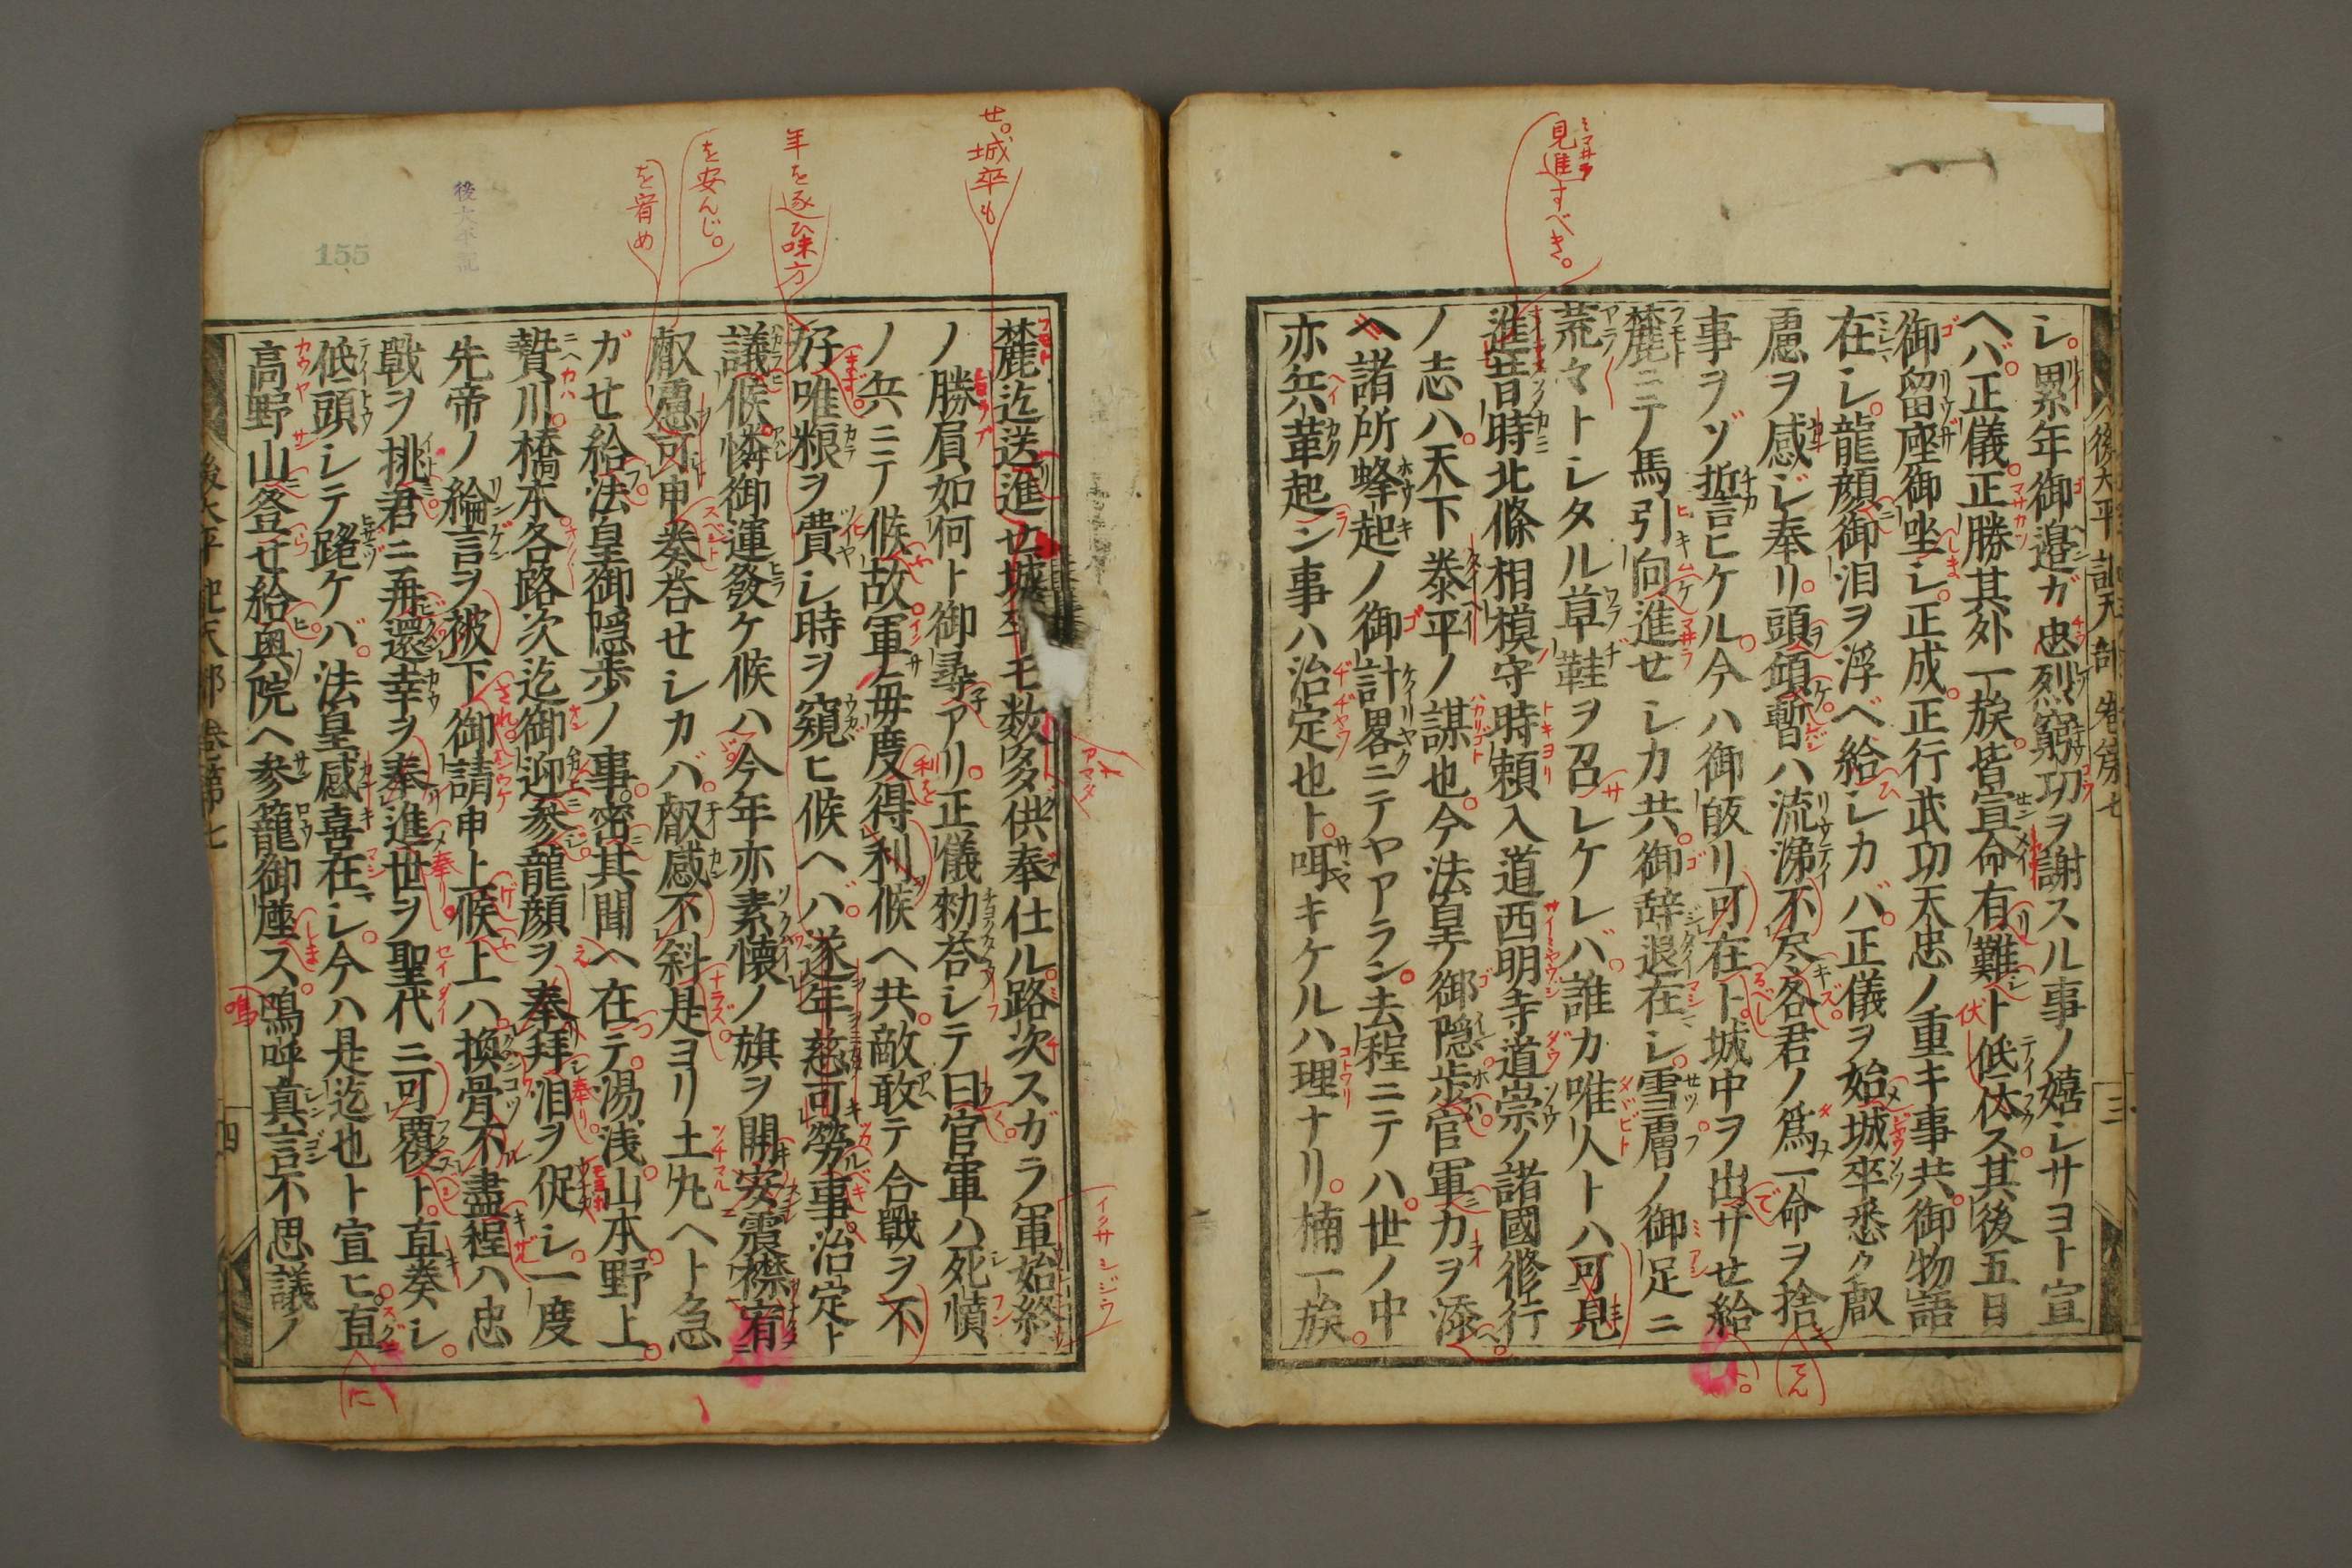 シ累年御邉ガ忠烈窮功ヲ謝スル事ノ嬉シサヨト宣
ヘバ正儀正勝其外一族皆宣命有難ト低伏ス其後五日
御留座御坐シ正成正行武功天忠ノ重キ事共御物語
在シ龍顔御泪ヲ浮ベ給シカバ正儀ヲ始城卒悉ク叡
慮ヲ感ジ奉リ頭頷暫ハ流涕不尽各君ノ爲一命ヲ捨
事ヲゾ誓ヒケル今ハ御皈リ可在ト城中ヲ出サせ給
麓ニテ馬引向進せシカ共御辞退在シ雪膚ノ御足ニ
荒々トシタル草鞋ヲ召レケレバ誰カ唯人トハ可見
進昔時北條相模守時頼入道西明寺道崇ノ諸國修行
ノ志ハ天下泰平ノ謀也今法皇ノ御隠歩官軍力ヲ添
ヘ諸所蜂起ノ御計畧ニテヤアラン去程ニテハ世ノ中
亦兵革起ン事ハ治定也ト呟キケルハ理ナリ楠一族
後太平記天部 卷第七
三
見進すべき。
麓迄送進せ城卒モ数多供奉仕ル路次スガラ軍始終
ノ勝負如何ト御尋アリ正儀勅荅シテ曰官軍ハ死憤
ノ兵ニテ候故軍毎度得利候ヘ共敵敢テ合戰ヲ不
好唯粮ヲ費シ時ヲ窺ヒ候ヘバ逐年慈可勞事治定ト
議候憐御運發ケ候ハ今年亦素懐ノ旗ヲ開安震襟宥
叡慮可申奏荅せシカバ叡感不斜是ヨリ土丸ヘト急
ガせ給法皇御隠歩ノ事密其聞ヘ在テ湯浅山本野上
贄川橋本各路次迄御迎参龍顔ヲ奉拝泪ヲ促シ一度
先帝ノ綸言ヲ被下御請申上候上ハ換骨不盡程ハ忠
戰ヲ挑君ニ再還幸ヲ奉進世ヲ聖代ニ可覆ト直奏シ
低頭シテ跪ケバ法皇感喜在シ今ハ是迄也ト宣ヒ直
高野山登せ給奥院ヘ参籠御座ス鳴呼真言不思議ノ
後太平記天部卷第七
四
せ。城卒も
年を逐ひ味方
を安んじ。
を宥め
後太平記
155